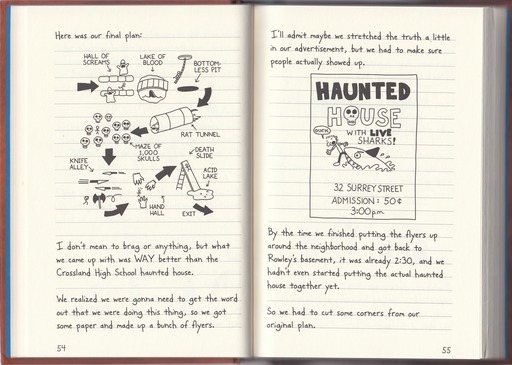 Here was our final plan:
HALL OF
SCREAMS
LAKE OF
BLOOD
BOTTOM-
LESS PIT
RAT TUNNEL
MAZE OF
1,000
SKULLS
KNIFE
ALLEY
DEATH
SLIDE
ACID
LAKE
HAND
HALL
EXIT
I don't mean to brag or anything, but what
we came up with was WAY better than the
Crossland High School haunted house.
We realized we were gonna need to get the word
out that we were doing this thing, so we got
some paper and made up a bunch of flyers.
54
I'll admit maybe we stretched the truth a little
in our advertisement, but we had to make sure
people actually showed up.
HAUNTED
HOUSE
OUCH
WITH LIVE
SHARKS!
32 SURREY STREET
ADMISSION: 50¢
3:00 p.m.
By the time we finished putting the flyers up
around the neighborhood and got back to
Rowley's basement, it was already 2:30, and we
hadn't even started putting the actual haunted
house together yet.
So we had to cut some corners from our
original plan.
55